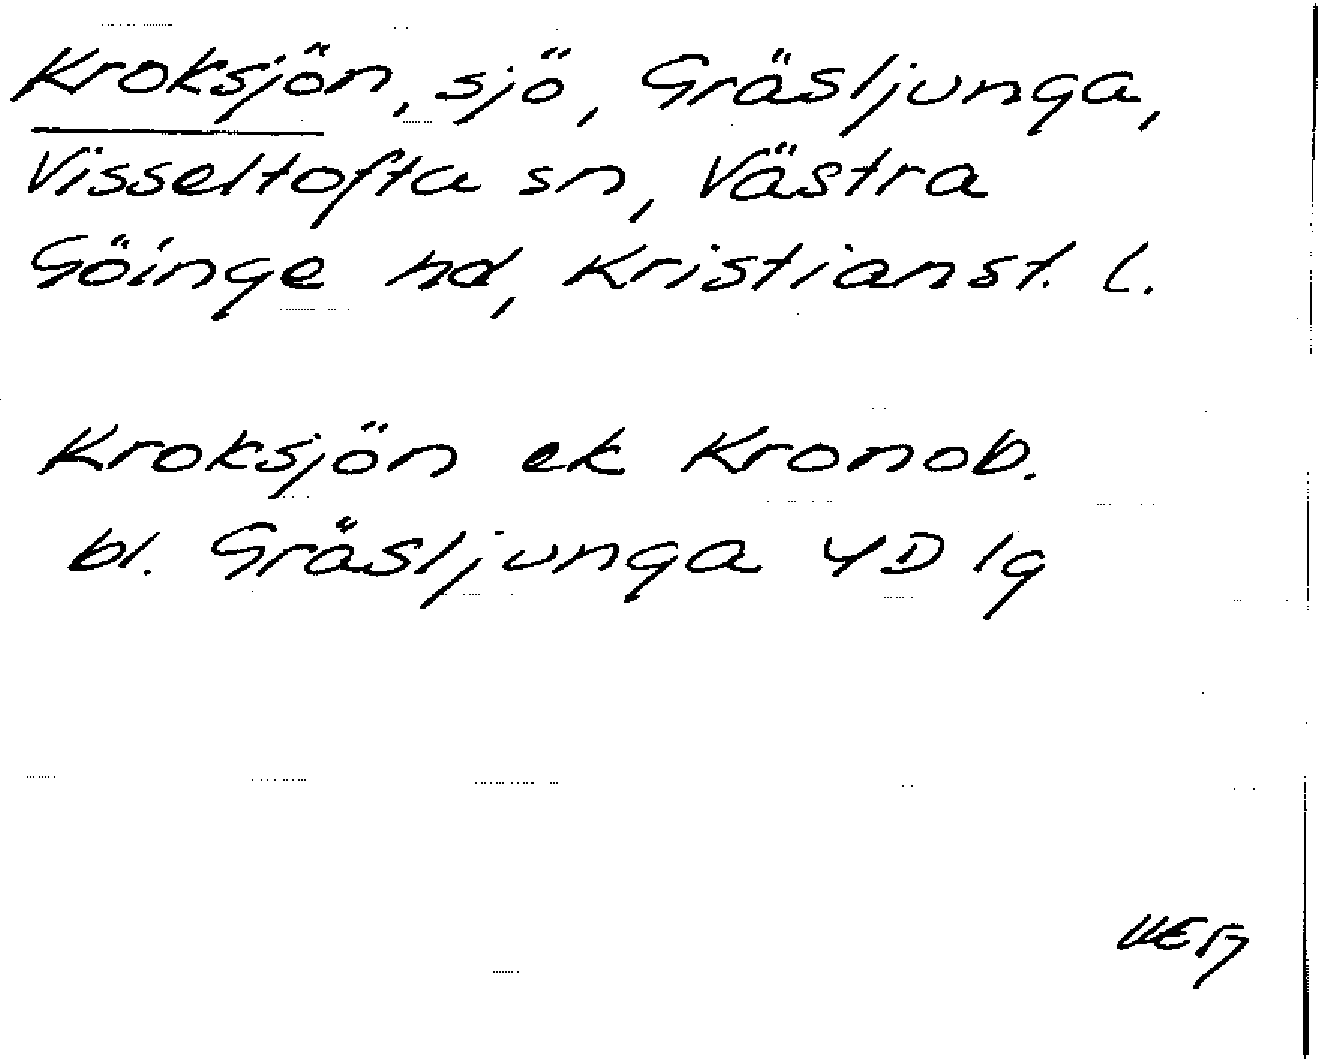 Kroksjön, sjö, Gräsljunga,
Visseltofta sn, Västra
Göinge hd, Kristianst. l.
Kroksjön ek Kronob.
bl. Gräsljunga 4D 1g